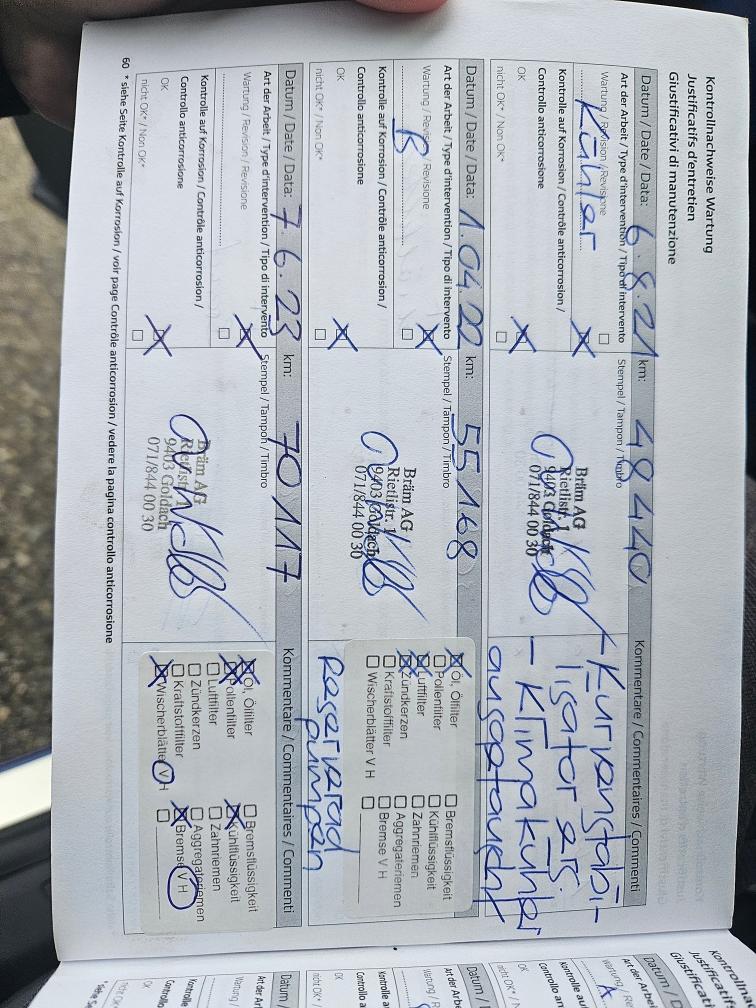 Kontrollnachweise Wartung
Justificatifs d'entretien
Giustificativi di manutenzione
Datum / Date / Data: 6.8.21 km: 48 440 Kommentare / Commentaires / Commenti
Art der Arbeit / Type d'intervention / Tipo di intervento Stempel / Tampon / Timbro
Wartung / Revision / Revisione
Kühler
Kontrolle auf Korrosion / Contrôle anticorrosion /
Controllo anticorrosione
OK
nicht OK* / Non OK*
Bräm AG
Rietlistr. 1
9403 Goldach
071/844 00 30
- Kurvenstabi-
lisator ers.
- Klimakühler
ausgetauscht
Datum / Date / Data: 1.04.22 km: 55 168
Art der Arbeit / Type d'intervention / Tipo di intervento Stempel / Tampon / Timbro
Wartung / Revision / Revisione
B
Kontrolle auf Korrosion / Contrôle anticorrosion /
Controllo anticorrosione
OK
nicht OK* / Non OK*
Bräm AG
Rietlistr. 1
9403 Goldach
071/844 00 30
Öl, Ölfilter Bremsflüssigkeit
Pollenfilter Kühlflüssigkeit
Luftfilter Zahnriemen
Zündkerzen Aggregateriemen
Kraftstofffilter Bremse V H
Wischerblätter V H
Reserverad
pumpen
Datum / Date / Data: 7.6.23 km: 70 117 Kommentare / Commentaires / Commenti
Art der Arbeit / Type d'intervention / Tipo di intervento Stempel / Tampon / Timbro
Wartung / Revision / Revisione
Kontrolle auf Korrosion / Contrôle anticorrosion /
Controllo anticorrosione
OK
nicht OK* / Non OK*
Bräm AG
Rietlistr. 1
9403 Goldach
071/844 00 30
Öl, Ölfilter Bremsflüssigkeit
Pollenfilter Kühlflüssigkeit
Luftfilter Zahnriemen
Zündkerzen Aggregateriemen
Kraftstofffilter Bremse V H
Wischerblätter V H
60 * siehe Seite Kontrolle auf Korrosion / voir page Contrôle anticorrosion / vedere la pagina controllo anticorrosione